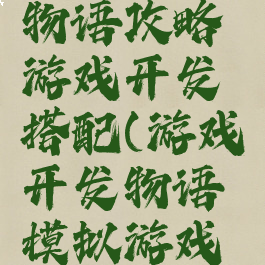 物语攻略
游戏开发
搭配(游戏
开发物语
模拟游戏